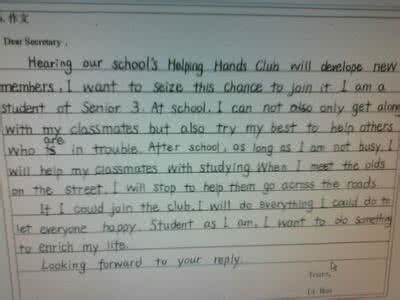 作文
Dear Secretary,
Hearing our school's Helping Hands Club will develope new
members, I want to seize this chance to join it. I am a
student of Senior 3. At school, I can not only get along
with my classmates but also try my best to help others
who are in trouble. After school, as long as I am not busy, I
will help my classmates with studying. When I meet the olds
on the street, I will stop to help them go across the roads
If I could join the club, I will do everything I could do to
let everyone happy. Student as I am, I want to do something
to enrich my life.
Looking forward to your reply.
Yours,
Li Hua